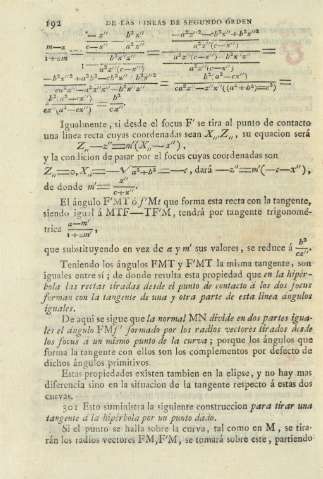 192 DE LAS LINEAS DE SEGUNDO ÓRDEN
Igualmente, si desde el focus F' se tira al punto de contacto
una linea recta cuyas coordenadas sean X,,,Z,,, su equacion será
Z,,—z''=m'(X,,—x''),
y la condicion de pasar por el focus cuyas coordenadas son
Z,,=0, X,,=—√a²+b²=—c, dará —z''=m'(—c—x''),
de donde m'= z''/(c+x'').
El ángulo F'MT ó f'Mt que forma esta recta con la tangente,
siendo igual á MTF—TF'M, tendrá por tangente trigonomé-
trica (a—m')/(1+am'),
que substituyendo en vez de a y m' sus valores, se reduce á b²/cz''.
Teniendo los ángulos FMT y F'MT la misma tangente, son
iguales entre sí; de donde resulta esta propiedad que en la hipér-
bola las rectas tiradas desde el punto de contacto á los dos focus
forman con la tangente de una y otra parte de esta linea ángulos
iguales.
De aqui se sigue que la normal MN divide en dos partes igua-
les el ángulo FMf' formado por los radios vectores tirados desde
los focus á un mismo punto de la curva; porque los ángulos que
forma la tangente con ellos son los complementos por defecto de
dichos ángulos primitivos.
Estas propiedades existen tambien en la elipse, y no hay mas
diferencia sino en la situacion de la tangente respecto á estas dos
curvas.
301 Esto suministra la siguiente construccion para tirar una
tangente á la hipérbola por un punto dado.
Si el punto se halla sobre la curva, tal como en M, se tira-
rán los radios vectores FM,F'M, se tomará sobre este, partiendo